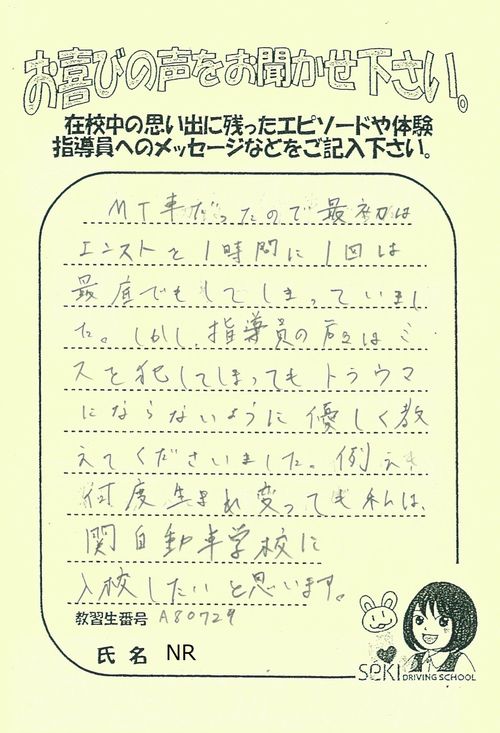 お喜びの声をお聞かせ下さい。
在校中の思い出に残ったエピソードや体験
指導員へのメッセージなどをご記入下さい。
MT車だったので最初は
エンストを1時間に1回は
最底でもしてしまっていまし
た。しかし、指導員の方はミ
スを犯してしまってもトラウマ
にならないように優しく教
えてくださいました。例え
何度生まれ変っても私は、
関自動車学校に
入校したいと思います。
教習生番号 A80729
氏名 NR
SEKI DRIVING SCHOOL